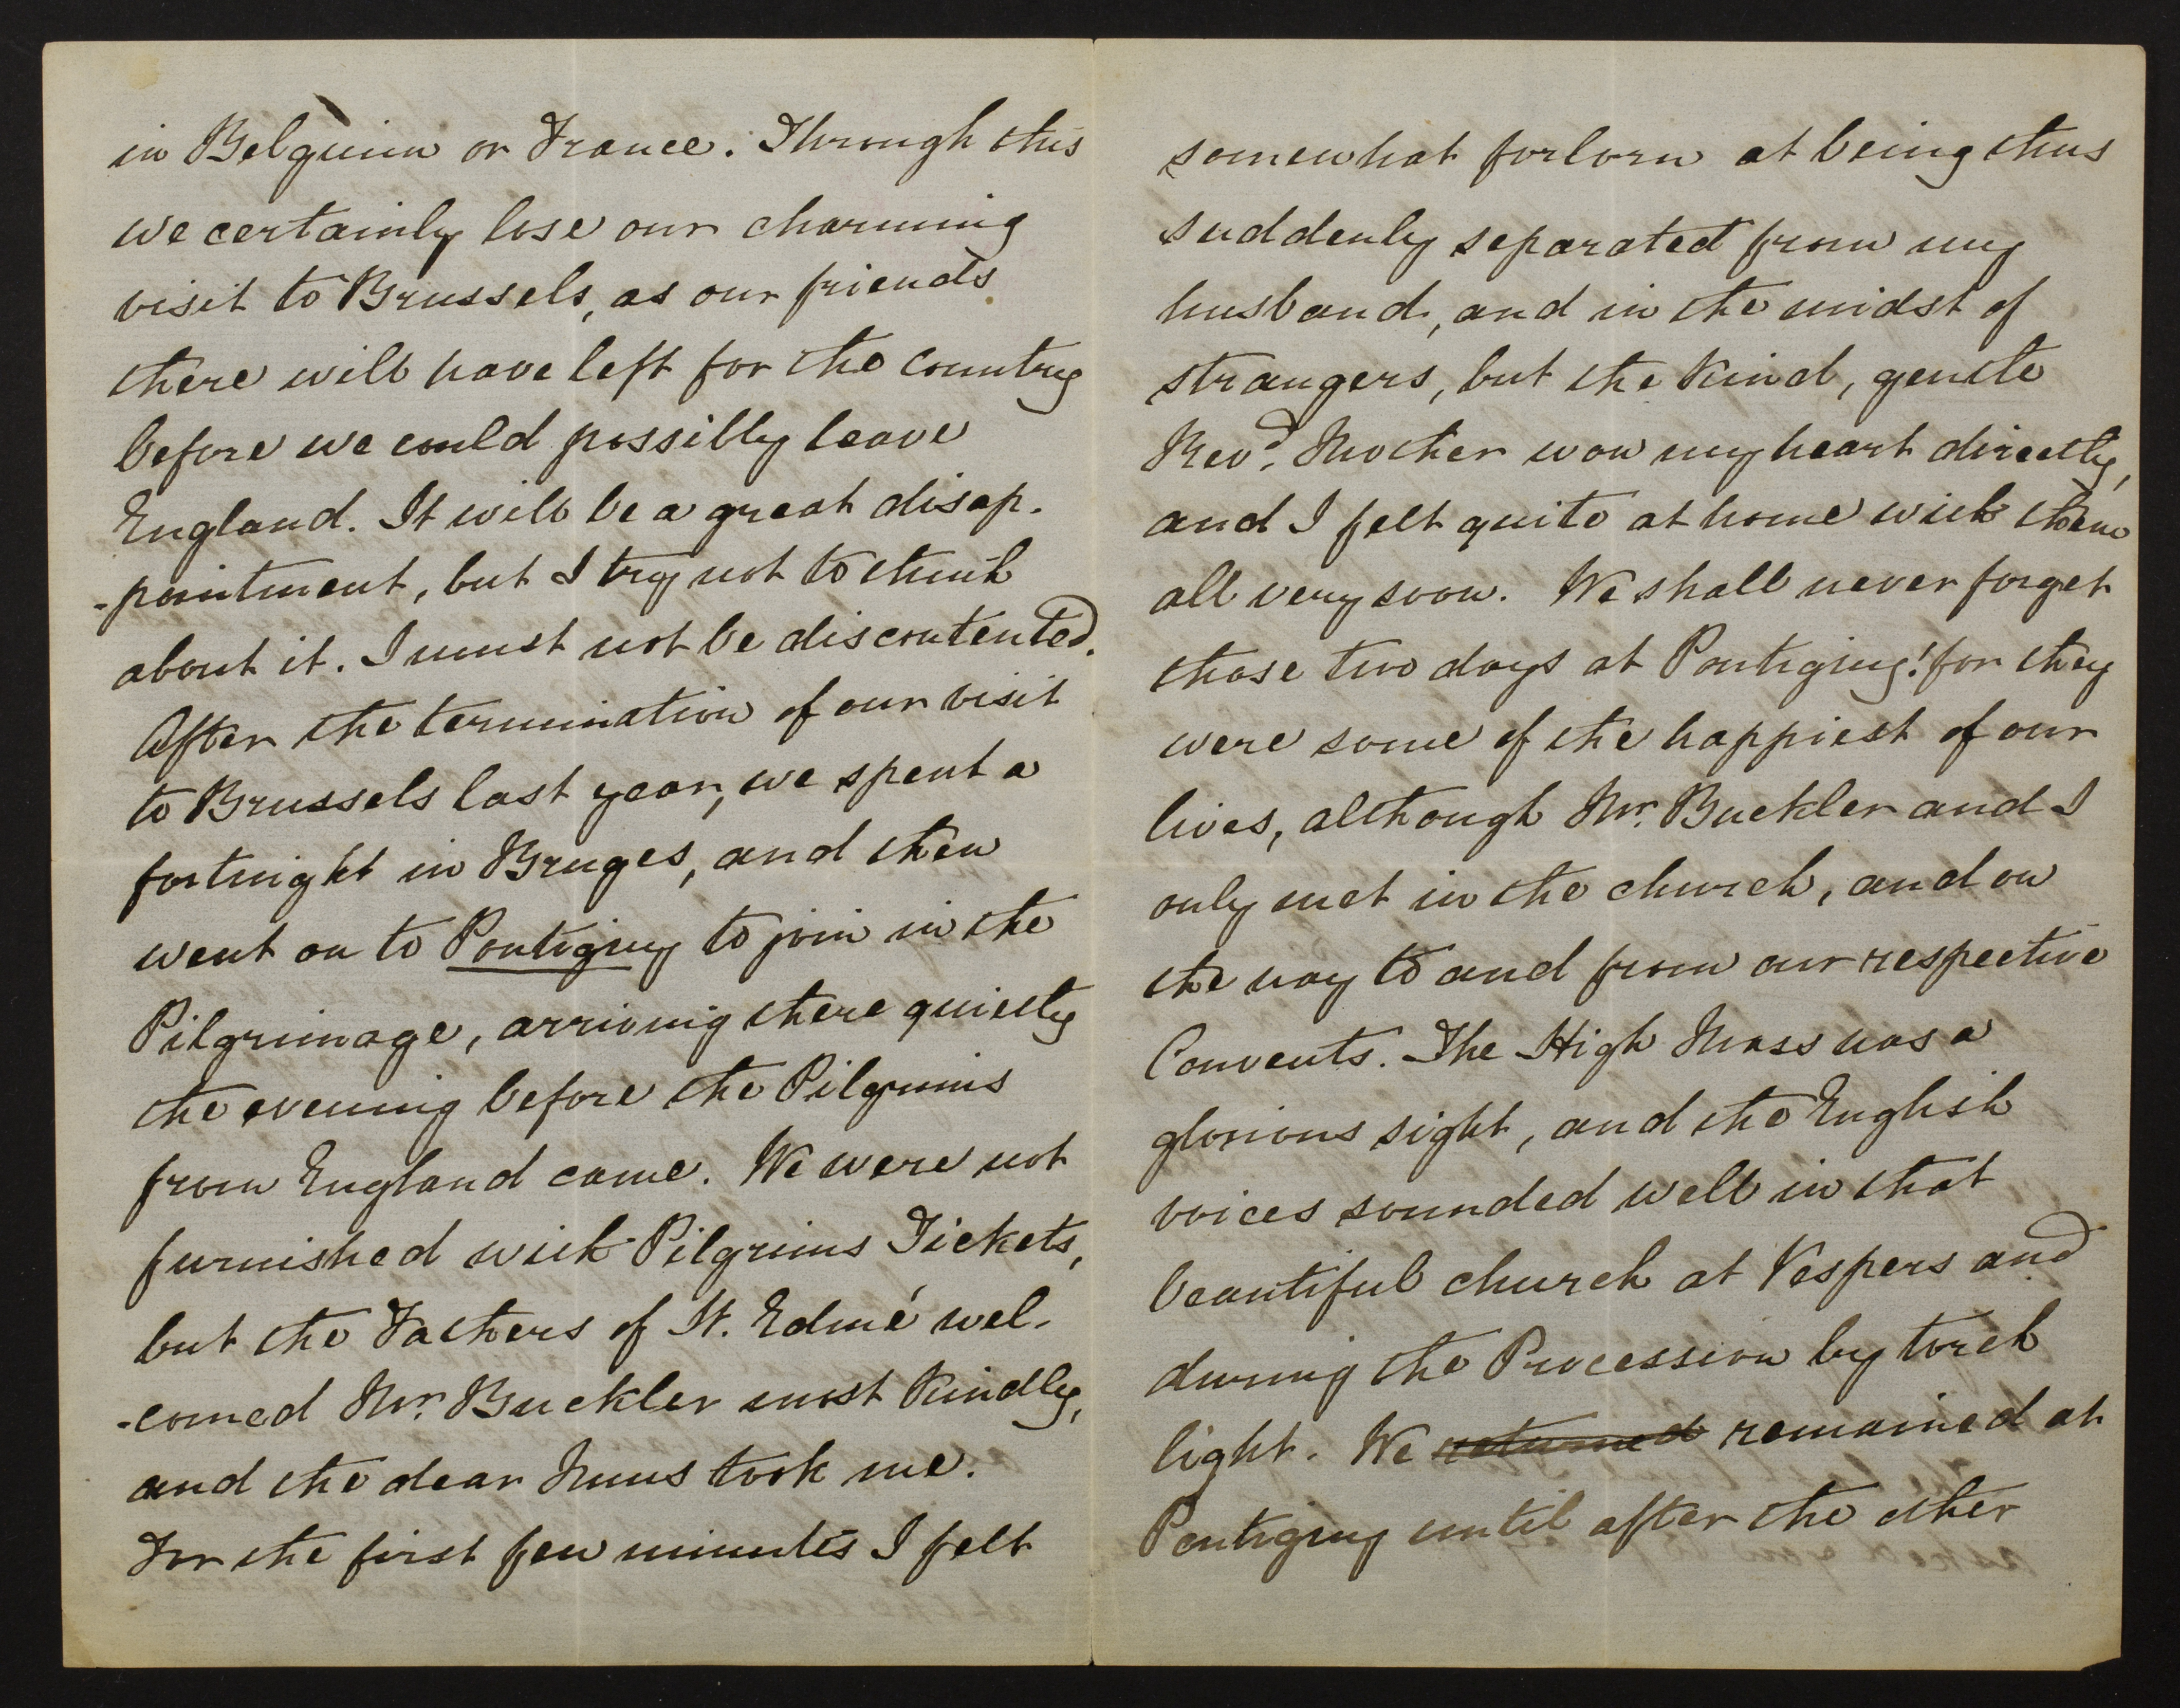 in Belguim or France. Through this
we certainly lose our charming
visit to Brussels, as our friends
there will have left for the country
before we could possibly leave
England. It will be a great disap-
-pointment, but I try not to think
about it. I must not be discontented.
After the termination of our visit
to Brussels last year, we spent a
fortnight in Bruges, and then
went on to Pontigny to join in the
Pilgrimage, arriving there quietly
the evening before the Pilgrims
from England came. We were not
furnished with Pilgrims Tickets,
but the Fathers of St. Edmé wel-
-comed Mr. Buckler most kindly,
and the dear Nuns took me.
For the first few minutes I felt
somewhat forlorn at being thus
suddenly separated from my
husband, and in the midst of
strangers, but the kind, gentle
Revd. Mother won my heart directly,
and I felt quite at home with them
all very soon. We shall never forget
those two days at Pontigny! for they
were some of the happiest of our
lives, although Mr. Buckler and I
only met in the church, and on
the way to and from our respective
Convents. The High Mass was a
glorious sight, and the English
voices sounded well in that
beautiful church at Vespers and
during the Procession by torch
light. We returned remained at
Pontigny until after the other